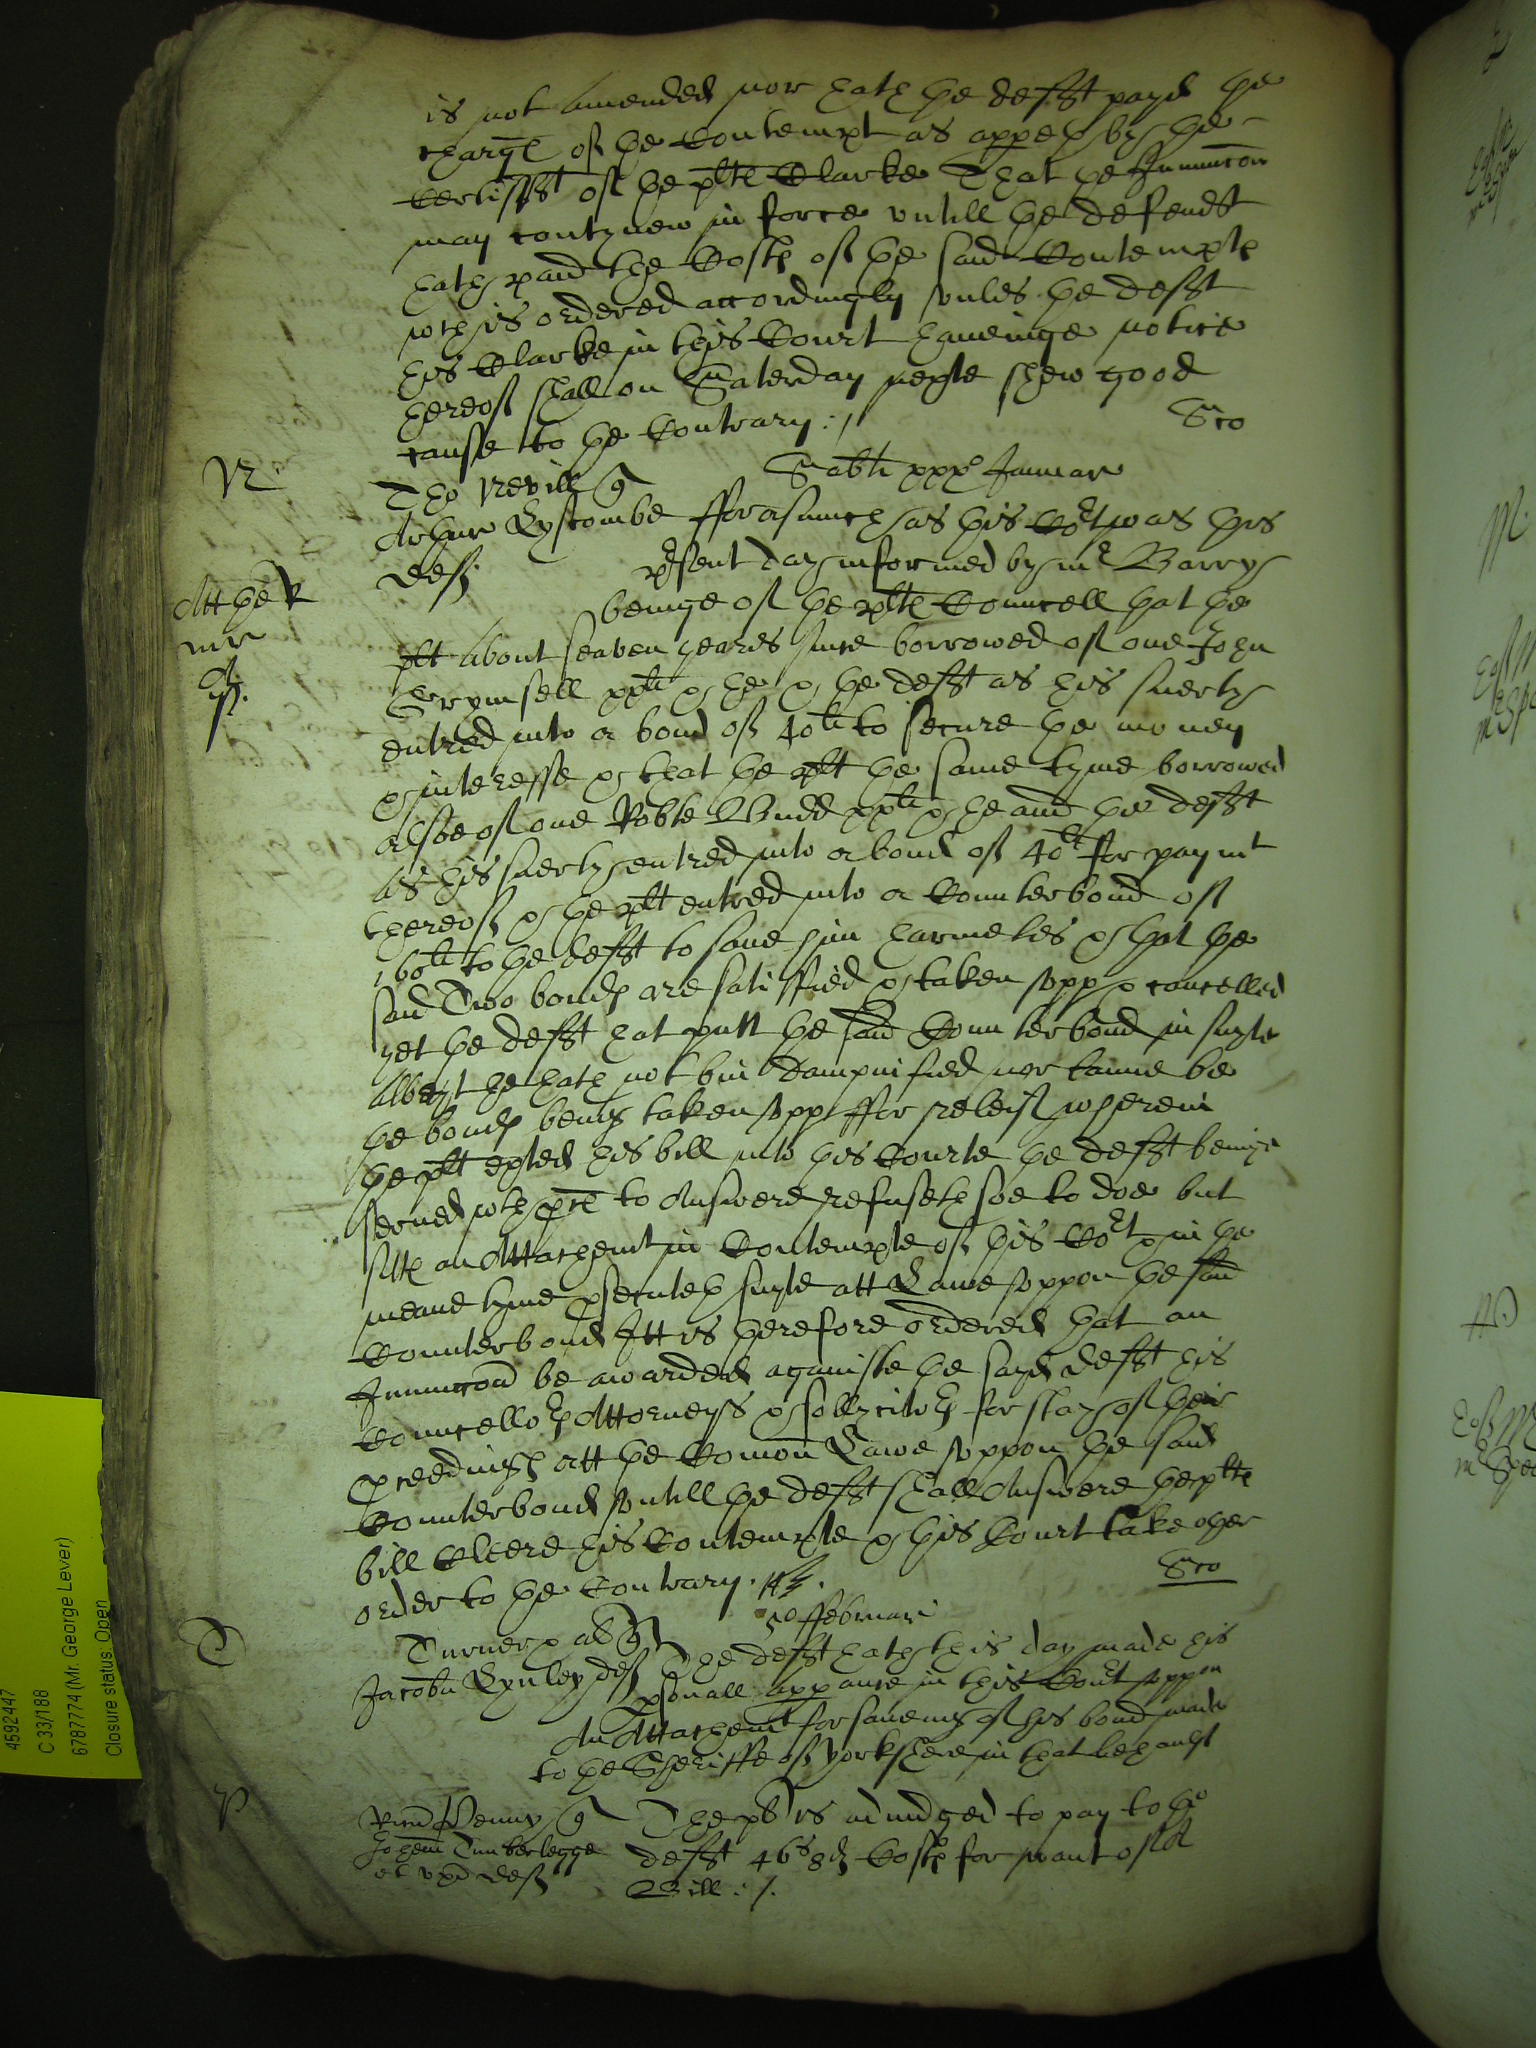 is not amended nor hath the defft payd the
charge of the Contempt as appeth by the
Certifft of the plts Clarke That the Iniunccon
may contynew in force vntill the defendt
hath paid the Costs of the said Contempte
wch is ordered accordingly vnles the defft
his Clarke in this Court haveinge notice
hereof shall on Saterday nexte shew good
cause to the Contrary :/
Sco
N
Sabti xxxo Januar
Tho Nevill q
Arthur Lyscombe
deft
fforasmuch as this Cort was this
prsent day informed by mr Barry
beinge of the plts Councell that the
Att the R
plt about seaven yeares since borrowed of one John
Grymsell xxli & he & the defft as his suerty
entred into a bond of 40li to secure the money
& interesse & that the plt the same tyme borrowed
alsoe of one Robte Budd xxli & he and the defft
as his suerty entred into a bond of 40li for paymt
thereof & the plt entred into a Counterbond of
to the defft to save him harmeles & that the
said Two bonds are satisffied & taken vpp & cancelled
yet the defft hat putt the said Counterbond in suyte
albeyt he hath not bin dampnified nor canne be
the bonds being taken vpp ffor releif wherein
the plt exhted his bill into this Courte the defft beinge
served wth pces to Answere refuseth soe to doe but
sitts an Attachemt in Contempte of this Cort & in the
meane tyme psecuteth suyte att Lawe vppon the said
Counterbond Itt is therefore ordered that an
Iniunccon be awarded againste the sayd defft his
Councellors Attorneys & sollycitors for stay of their
pceedings att the Comon Lawe vppon the said
Counterbond vntill the defft shall Answere the plts
bill Cleere his Contempte & this Court take other
order to the Contrary.
Sco
5o ffebruarii
T
Turner & al q
Jacobu Lynley deft
The defft hath this day made his
psonall appance in this Court vppon
An Attachemt for saveing of his bond made
to the Sheriffe of Yorkshere in that behaulf
P
Ricus Penny q
Johem Timberlegge
et vx deft
The plt is adiudged to pay to the
defft 46s 8d Costs for want of A
Bill :/.
4592247
C 33/188
6787774 (Mr. George Lever)
Closure status: Open